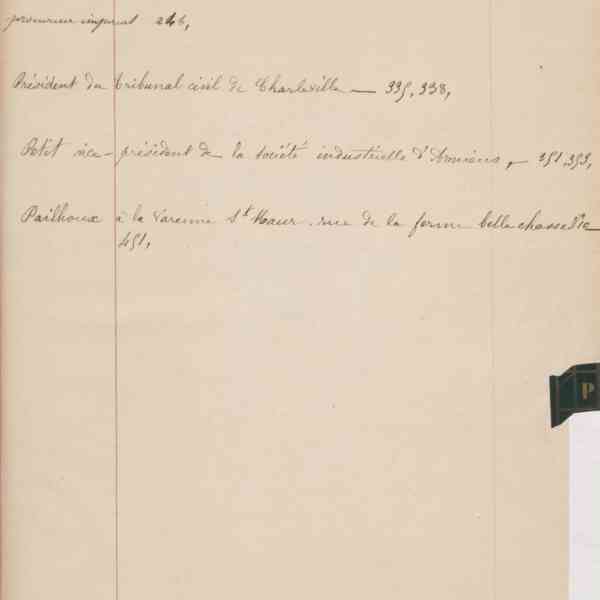 procureur impérial 246,
Président du tribunal civil de Charleville — 335, 338,
Petit vice-président de la société industrielle d'Amiens, — 351, 353,
Pailhoux à la Varenne St Maur. rue de la ferme
451,
P